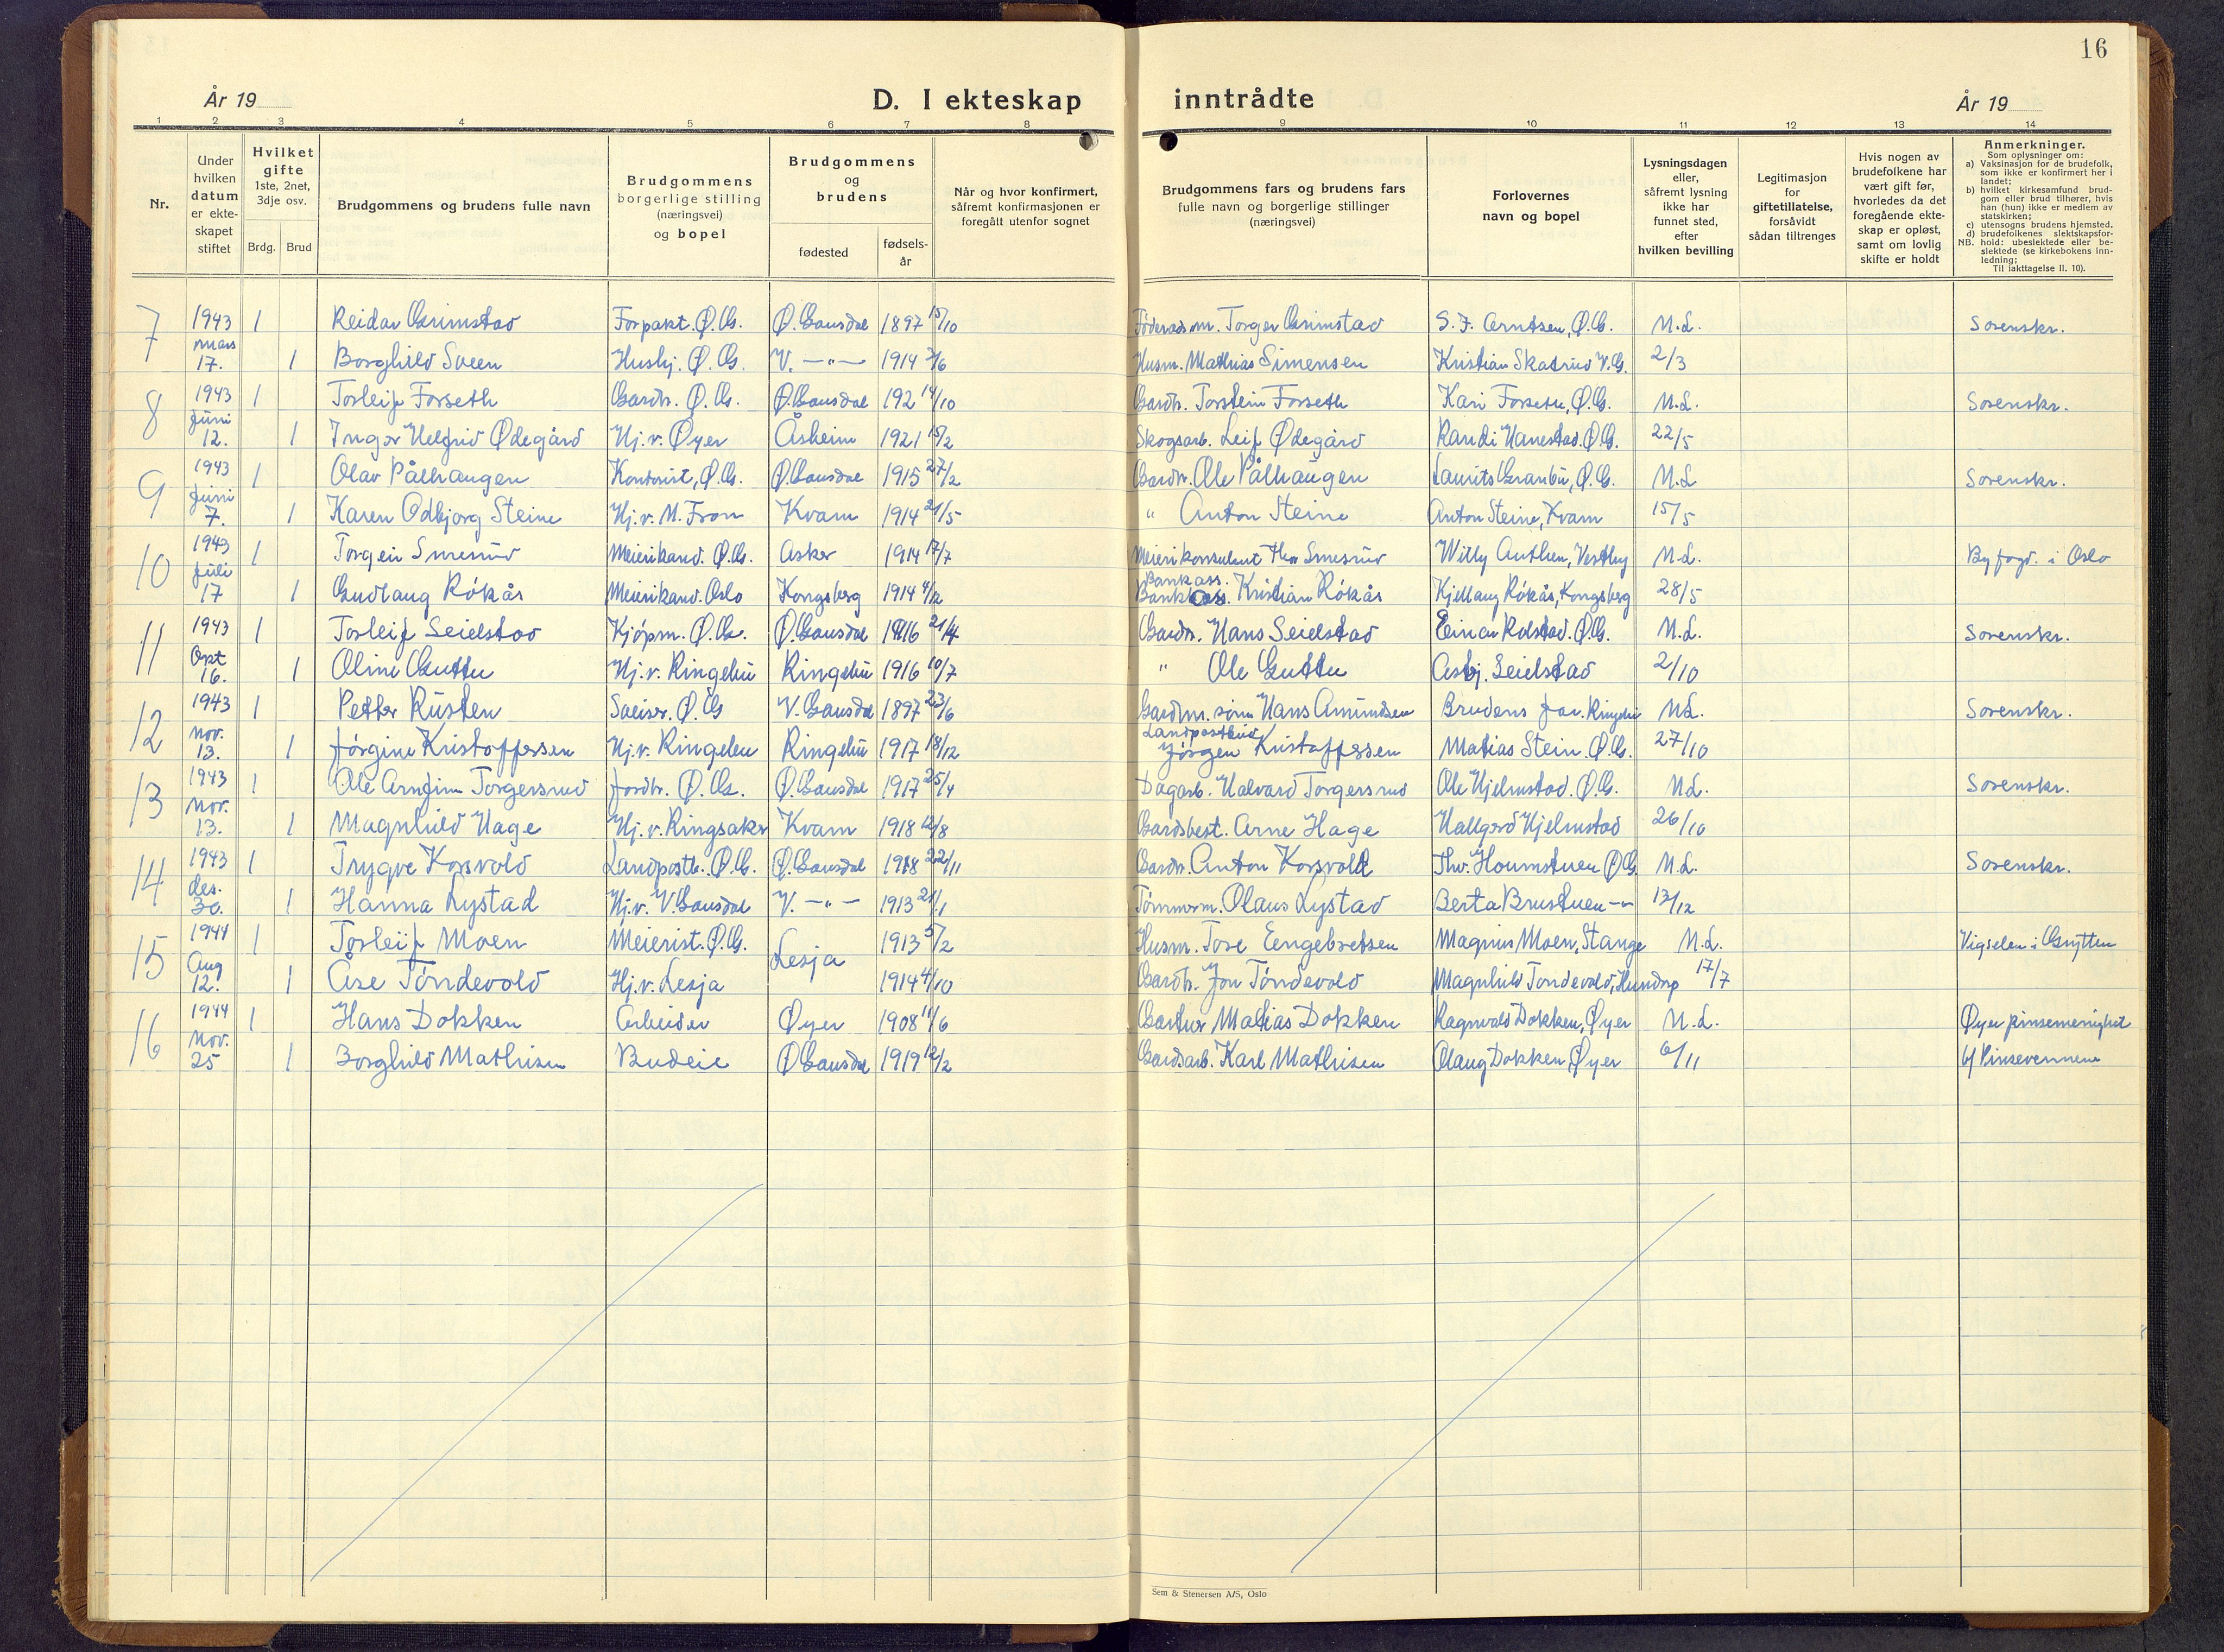 16
År 19
D. I ekteskap inntrådte
År 19
1 2 3 4 5 6 7 8 9 10 11 12 13 14
Nr.
Under hvilken datum er ekte-skapet stiftet
Hvilket gifte 1ste, 2net, 3dje osv.
Brdg. Brud
Brudgommens og brudens fulle navn
Brudgommens borgerlige stilling (næringsvei) og bopel
Brudgommens og brudens
fødested
fødsels-år
Når og hvor konfirmert, såfremt konfirmasjonen er foregått utenfor sognet
Brudgommens fars og brudens fars fulle navn og borgerlige stillinger (næringsvei)
Forlovernes navn og bopel
Lysningsdagen eller, såfremt lysning ikke har funnet sted, efter hvilken bevilling
Legitimasjon for giftetillatelse, forsåvidt sådan tiltrenges
Hvis nogen av brudefolkene har vært gift før, hvorledes da det foregående ekte-skap er opløst, samt om lovlig skifte er holdt
Anmerkninger.
Som oplysninger om:
a) Vaksinasjon for de brudefolk, som ikke er konfirmert her i landet;
b) hvilket kirkesamfund brud-gom eller brud tilhører, hvis han (hun) ikke er medlem av statskirken;
c) utensogns brudens hjemsted.
d) brudefolkenes slektskapsfor-
NB. hold: ubeslektede eller be-slektede (se kirkebokens inn-ledning;
Til iakttagelse II. 10).
7 1943 1 Reidar Grimstad Forpakt. Ø.G. Ø. Gausdal 1897 15/10 Föderådsm. Torger Grimstad S. F. Arntsen, Ø.G. N.L. Sorenskr.
mars 17. 1 Borghild Sveen Hushj. Ø.G. V. —„— 1914 Husm. Mathias Simensen Kristian Skatrud V.G. 2/3
8 1943 1 Torleif Forseth Gardbr. Ø.G. Ø. Gausdal 192 14/10 Gardb. Torstein Forseth Kari Forseth, Ø.G. N.L. Sorenskr.
Juni 12. 1 Inger Helfrid Ødegård Hj.v. Øyer Åsheim 1921 15/2 Skogsarb. Leif Ødegård Randi Hanestad. Ø.G. 22/5
9 1943 1 Olav Pålhaugen Kontorist, Ø.G. Ø. Gausdal 1915 27/2 Gardbr. Ole Pålhaugen Laurits Granbu, Ø.G. N.L Sorenskr.
Juni 7. 1 Karen Odbjørg Steine Hj.v. N. Fron Kvam 1914 21/5 „ Anton Steine Anton Steine, Kvam 15/5
10 1943 1 Torgeir Smerud Meierikand. Ø.G. Asker 1914 17/7 Meierikonsulent Thor Smerud Willy Authen, Vestby N.L. Byfogd. i Oslo
Juli 17 1 Gudlaug Røkås Meierikand. Oslo Kongsberg 1914 4/12 Bankass. Kristian Røkås Kjellaug Røkås, Kongsberg 28/5
11 1943 1 Torleif Seielstad Kjøpm. Ø.G. Ø. Gausdal 1916 21/4 Gardbr. Hans Seielstad Einar Rolstad. Ø.G. N.L. Sorenskr.
Okt 16. 1 Oline Guttu Hj.v. Ringebu Ringebu 1916 10/7 „ Ole Guttu Asbj. Seielstad 2/10
12 1943 1 Petter Rusten Sveiser. Ø.G V. Gausdal 1897 23/6 Gardm. sønn Hans Amundsen Brudens far. Ringebu N.L. Sorenskr.
nov. 13. 1 Jørgine Kristoffersen Hj.v. Ringebu Ringebu 1917 18/12 Landpostbud Jørgen Kristoffersen Matias Stein. Ø.G. 27/10
13 1943 1 Ole Arnfinn Torgersrud Jordbr. Ø.G. Ø. Gausdal 1917 25/4 Dagarb. Halvard Torgersrud Ole Hjelmstad. Ø.G. N.L. Sorenskr.
Nov. 13. 1 Magnhild Hage Hj.v. Ringsaker Kvam 1918 12/8 Gardsbest. Arne Hage Hallgerd Hjelmstad 26/10
14 1943 1 Trygve Korsvold Landpostb. Ø.G. Ø. Gausdal 1918 22/11 Gardbr. Anton Korsvold Thv. Houmstuen Ø.G. N.L. Sorenskr.
des. 30. 1 Hanna Lystad Hj.v. V. Gausdal V. —„— 1913 21/1 Tømmerm. Olaus Lystad Berta Brustuen —„— 13/12
15 1944 1 Torleif Moen Meierist. Ø.G. Lesja 1913 5/2 Husm. Tore Eengebretsen Magnus Moen, Stange N.L. Vigselen i Grytten
Aug 12. 1 Åse Tøndevold Hj.v. Lesja 1914 4/10 Gardb. Jon Tøndevold Magnhild Tøndevold, Hundorp 17/7
16 1944 1 Hans Dokken Arbeider Øyer 1908 11/6 Gartner Matias Dokken Ragnvald Dokken, Øyer N.L. Øyer pinsemenighet
Nov. 25 1 Borghild Mathisen Budeie Ø Gausdal 1919 12/2 Gardsarb. Karl Mathisen Olaug Dokken Øyer 6/11 Pinsevennene
Sem & Stenersen A/S, Oslo